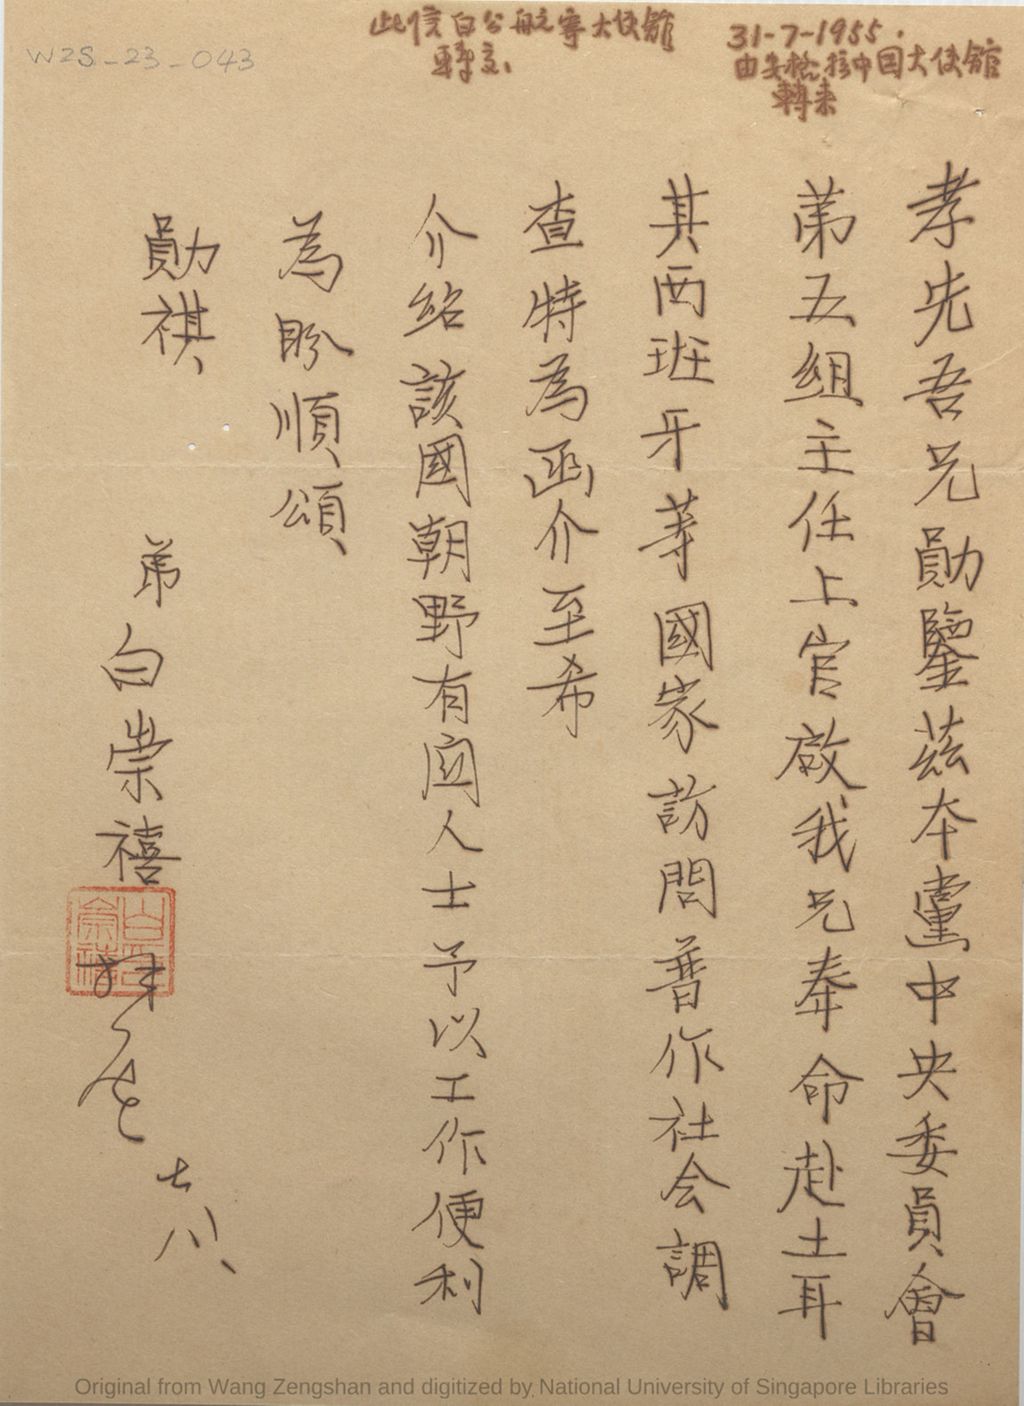 WZS-23-043
31-7-1955.
由安格拉中国大使館
轉来
此信白公航寄大使館
轉交、
孝先吾兄勛鑒茲本黨中央委員會
第五組主任上官啟我兄奉命赴土耳
其西班牙等國家訪問普作社会調
查特為函介至希
介紹該國朝野有関人士予以工作便利
為盼順頌
勛祺、
弟白崇禧
白崇禧印
七八、
Original from Wang Zengshan and digitized by National University of Singapore Libraries